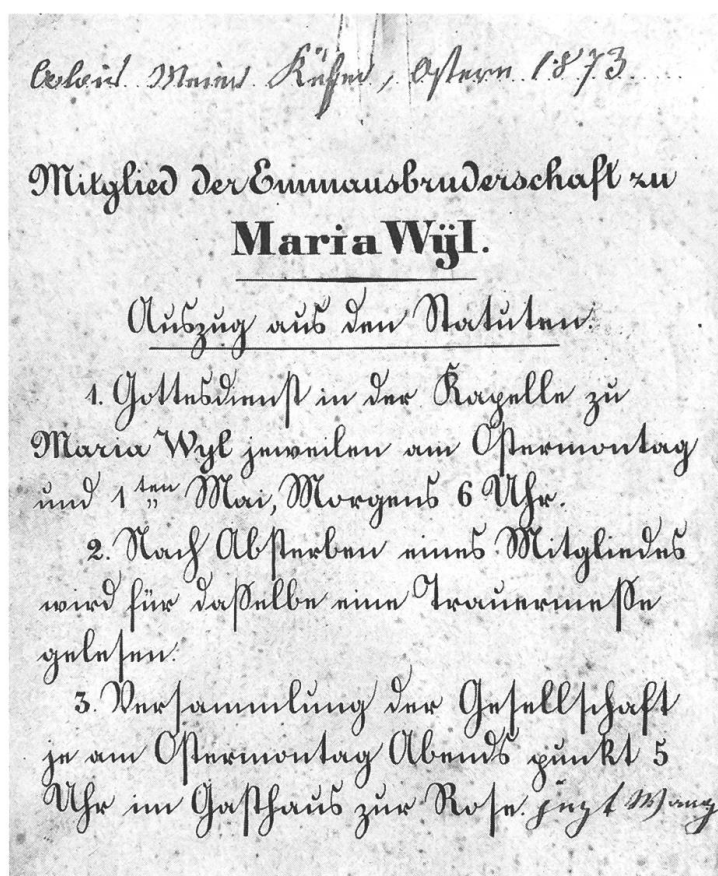 Alois Meier Küfer, Ostern 1873
Mitglied der Emmausbruderschaft zu
Maria Wÿl.
Auszug aus den Statuten:
1. Gottesdienst in der Kapelle zu
Maria Wyl jeweilen am Ostermontag
und 1ten Mai, Morgens 6 Uhr.
2. Nach Absterben eines Mitgliedes
wird für dasselbe eine Trauermesse
gelesen.
3. Versammlung der Gesellschaft
je am Ostermontag Abends punkt 5
Uhr im Gasthaus zur Rose. jezt